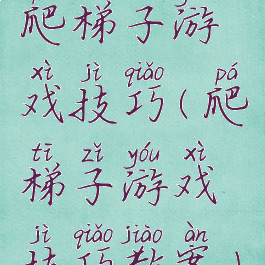 爬梯子游
xì jì qiǎo pá
戏技巧(爬
tī zǐ yóu xì
梯子游戏
jì qiǎo jiào àn
技巧教案)